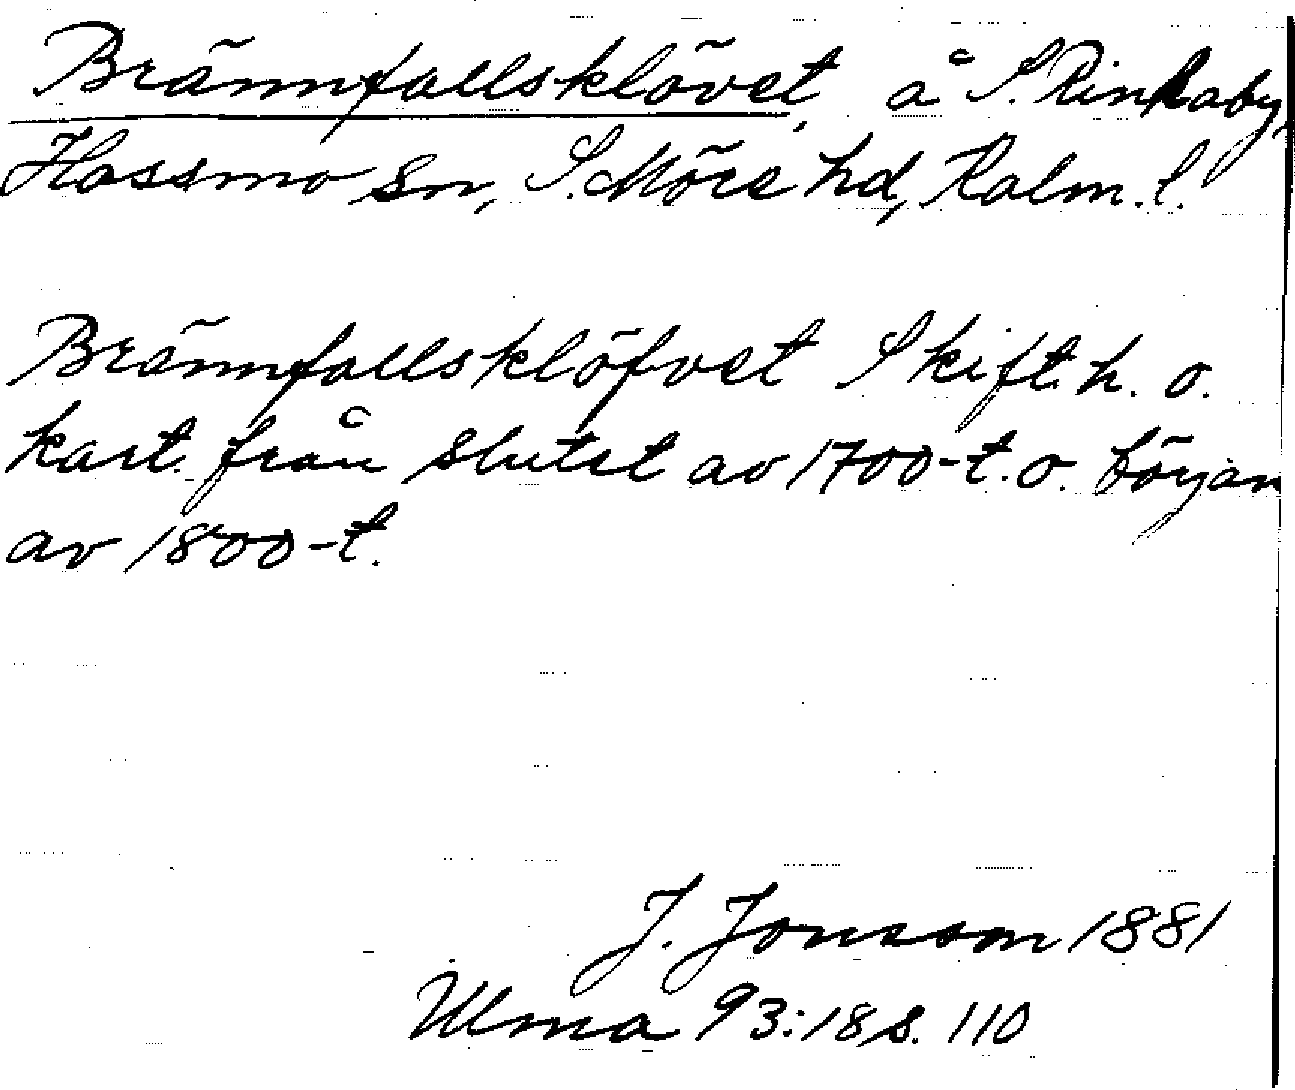 Brännfallsklövet, å S. Rinkaby,
Hossmo sn, S. Möre hd, Kalm. l.
Brännfallsklöfvet Skift. h. o.
kart. från slutet av 1700-t. o. början
av 1800-t.
J. Jonsson 1881
Ulma 93:18 s. 110